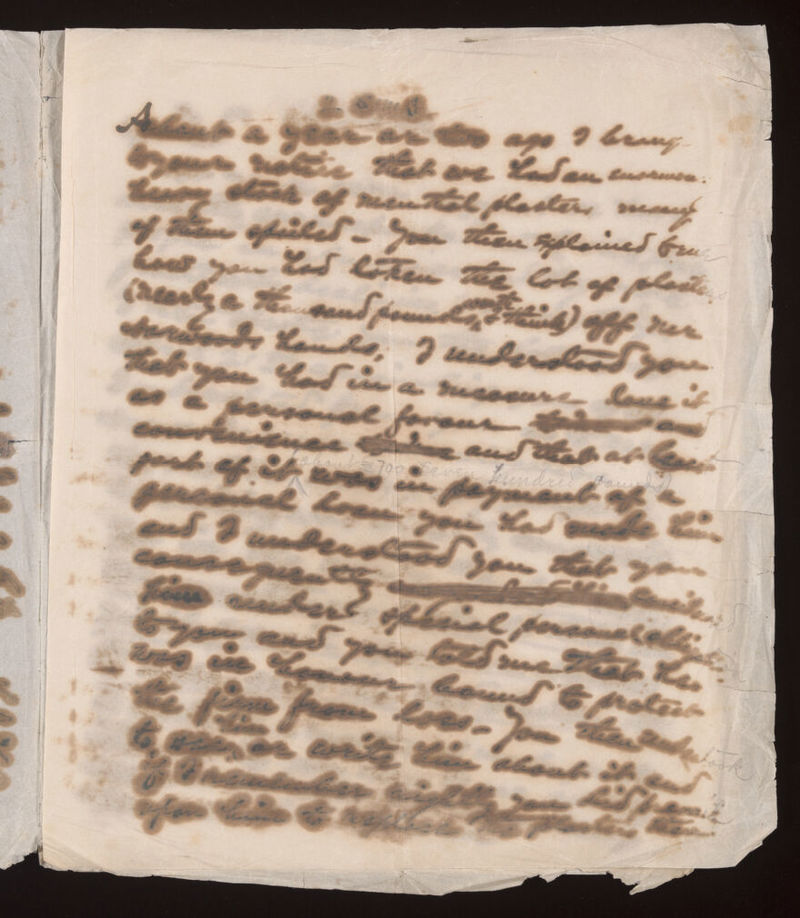 About a year or two ago I
to your notice that we had an
heavy stock of menthol plasters many
of them spoiled - You then explained to me
how you had taken the lot of
(nearly a thousand pounds worth I think) off
hands, I understood you
that you had in a measure done it
as a personal favour and
convenience and that at
part of it (about £700 seven hundred pounds) was in payment of a
personal loan you had made him
and I understood you that you
consequently
him under special personal
to you and you told me that he
was in honour bound to protect
the firm from loss - You then
to see him or write him about it and
if I remember rightly you
upon him to the plasters